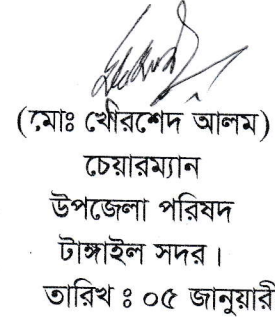 (মোঃ খোরশেদ আলম)
চেয়ারম্যান
উপজেলা পরিষদ
টাঙ্গাইল সদর।
তারিখ ঃ ০৫ জানুয়ারী